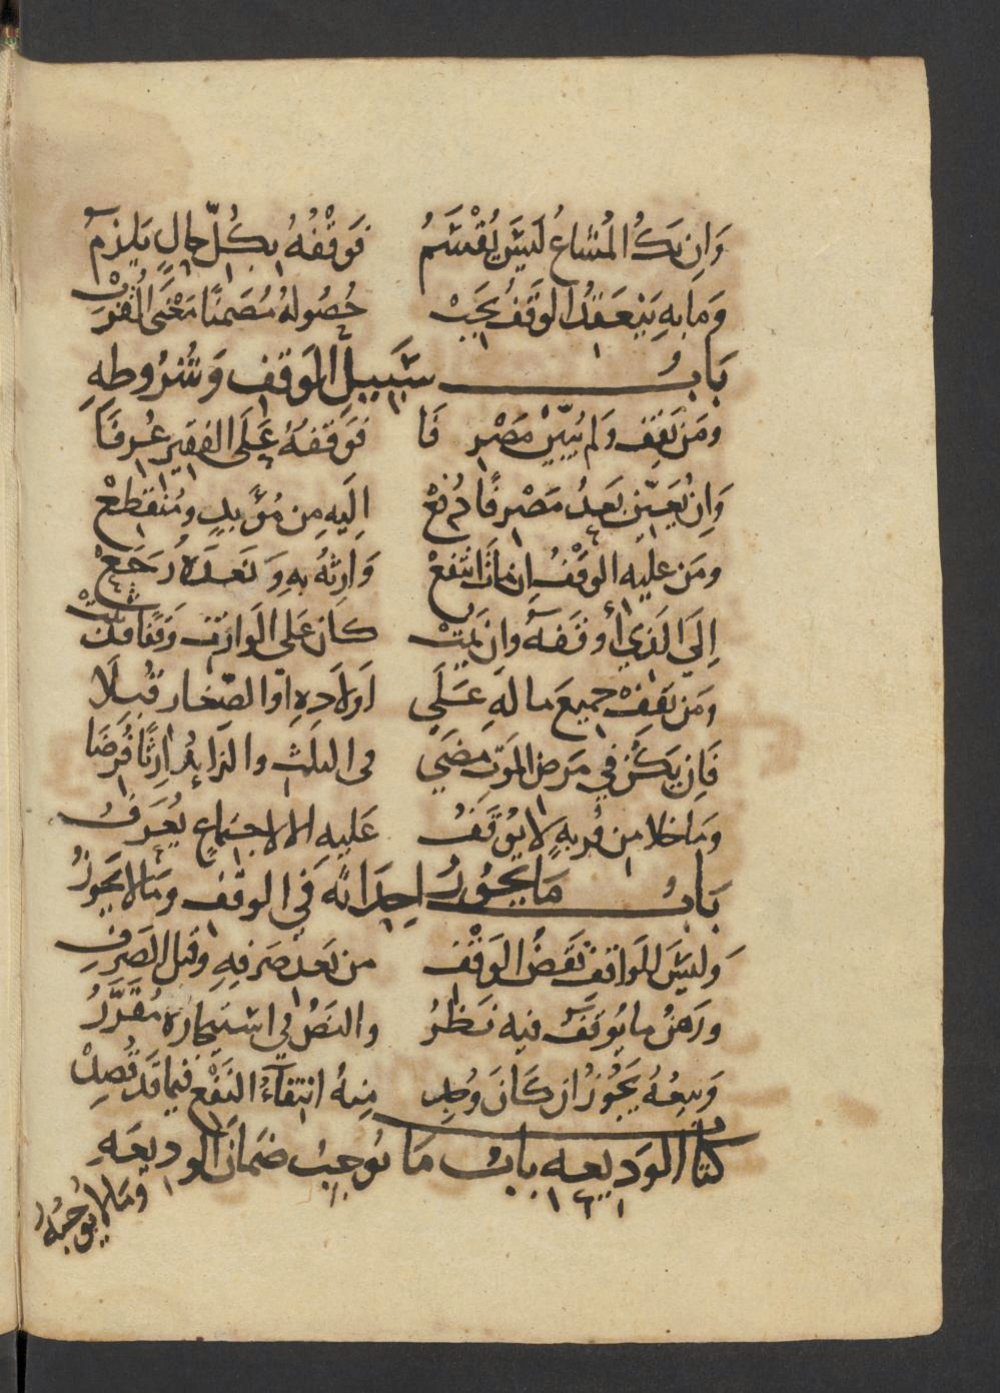 وَاِن يَكُ المُشَاعُ لَيْسَ يُقْسَمُ فَوَقْفُهُ بِكُلِّ حَالٍ يَلزمُ
وَمَا بِهِ يَنْعَقِدُ الوَقْفُ يَجِبْ حُصُولُهُ مُضَمنًا مَعْنَى القُرَبْ
بَابُ سَبِيلِ الوَقفِ وَشُرُوطِهِ
ومَن يَقِف وَلم يُبَيّنْ مَصْرِفَا فَوَقفهُ عَلَى الفقِيرِ عُرِفَا
وَاِن يُعَيّن بَعدُ مَصْرِفًا دُفعْ اِلَيهِ مِن مُؤَبدٍ ومُنْقَطِعْ
ومَن عليه الوَقْفُ اِن مَاتَ انتفعْ وَارِثهُ بِهِ وَبَعدهُ رَجَعْ
اِلَى الَّذِي أوقَفَهُ وان يَمُتْ كانَ عَلى الوَارِث وَقفًا
ومَن يَقِفْ جمِيعَ مالهِ عَلَى اَولاَدِهِ الصّغار قُبِلَا
فَاِن يَكُن فِي مَرَضِ المَوتِ مضَى فى الثلث والزَايدُ اِرثًا فُرِضَا
ومَا خلا مِن قُربةٍ لا يُوقَفُ عَلَيهِ الا لاجتماعٍ يُعرَفُ
بَابُ مَا يَجُوزُ احدَاثه فِي الوقفِ ومَا لا يَجُوزُ
وَليْسَ للوَاقفِ نَقضُ الوَقْفِ من بَعدِ صَرفِهِ وقَبل الصَرفِ
ورَهنُ ما يُوقَفُ فيه نَظَرُ والنصُ فِي استيجاره مُقَرَّرُ
وَبيعُهُ يَجُوزُ ان كَانَ وُجِد مِنهُ انتِفَاءُ النَفْعِ فيما قَد قُصِدْ
كتَابُ الوَديعه بابُ مَا يُوجِبُ ضَمَانَ الوديعَهِ
ومَا لا يُوجبُهُ